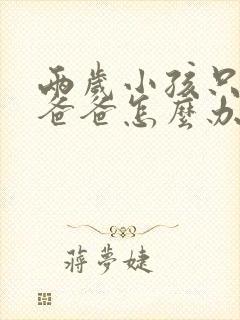 兩歲小孩只
爸爸怎麼办
蔣夢婕